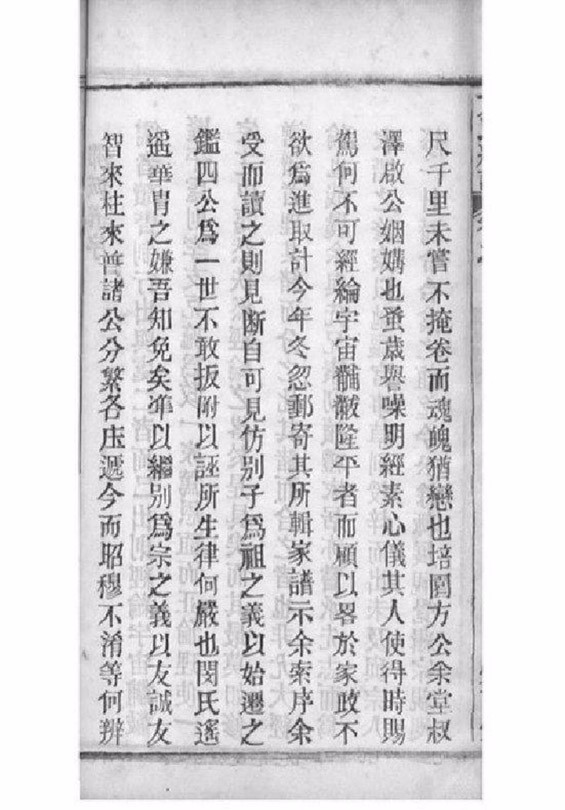 尺千里未嘗不掩卷而魂魄猶戀也培圓方公余堂叔
澤啟公姻媾也蚤歲譽噪明經素心儀其人使得時賜
駕何不可經綸宇宙黼黻隆平者而顧以畧於家政不
欲爲進取計今年冬忽郵寄其所輯家譜示余索序余
受而讀之則見斷自可見仿別子爲祖之義以始遷之
鑑四公爲一世不敢扳附以誣所生律何嚴也閔氏遙
遥華胄之嫌吾知免矣準以繼別爲宗之義以友誠友
智來柱來普諸公分繁各庄遞今而昭穆不淆等何辨